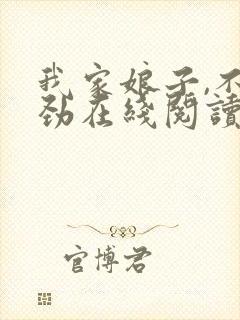 我家娘子,不
劲在綫閱讀
官博君